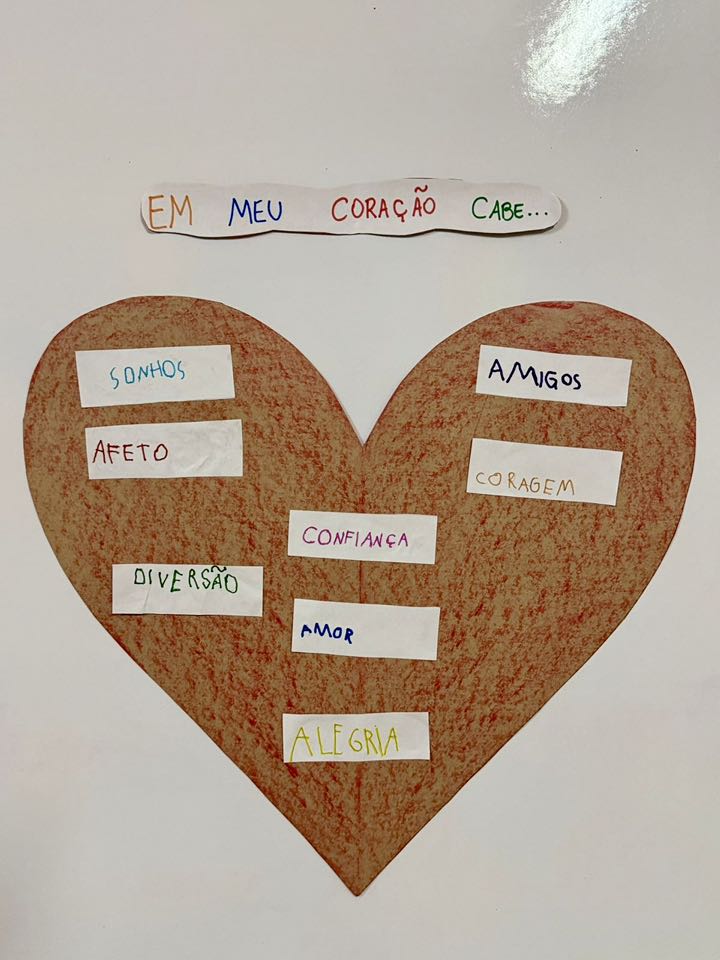 EM MEU CORAÇÃO CABE...
SONHOS
AMIGOS
AFETO
CORAGEM
CONFIANÇA
DIVERSÃO
AMOR
ALEGRIA